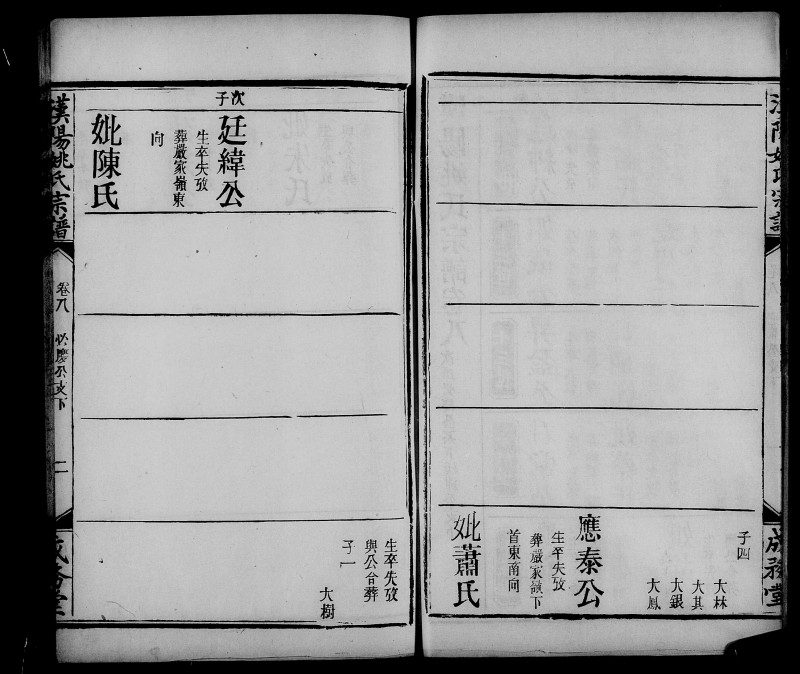 子四
大林
大其
大銀
大鳳
應泰公
生卒失攷
葬嚴家嶺下
首東南向
妣蕭氏
生卒失攷
與公合葬
子一
大樹
次子
廷緯公
生卒失攷
葬嚴家嶺東
向
妣陳氏
漢陽姚氏宗譜
卷八
慶公支下
二